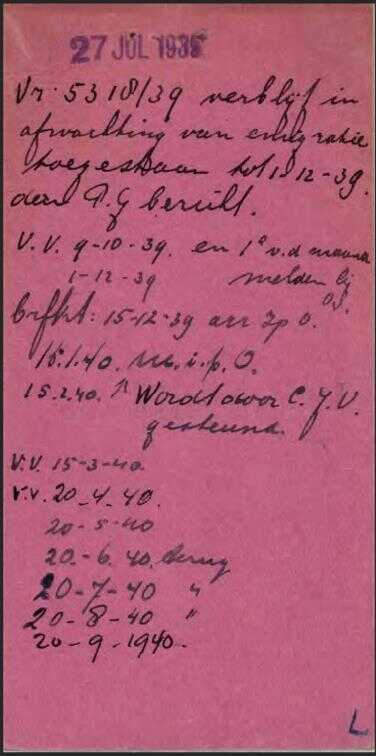 27 JUL 1939
Vr. 5318/39 verblijf in
afwachting van emigratie
toegestaan tot 1-12-39.
door P.G. bericht.
V.V. 9-10-39. en 1e v.d. maand
1-12-39 melden bij
15-12-39
15.1.40.
15.2.40. Wordt door C.J.V.
gesteund.
V.V. 15-3-40.
V.V. 20-4-40.
20-5-40
20-6.40. terug
20-7-40 "
20-8-40 "
20-9-1940.
L